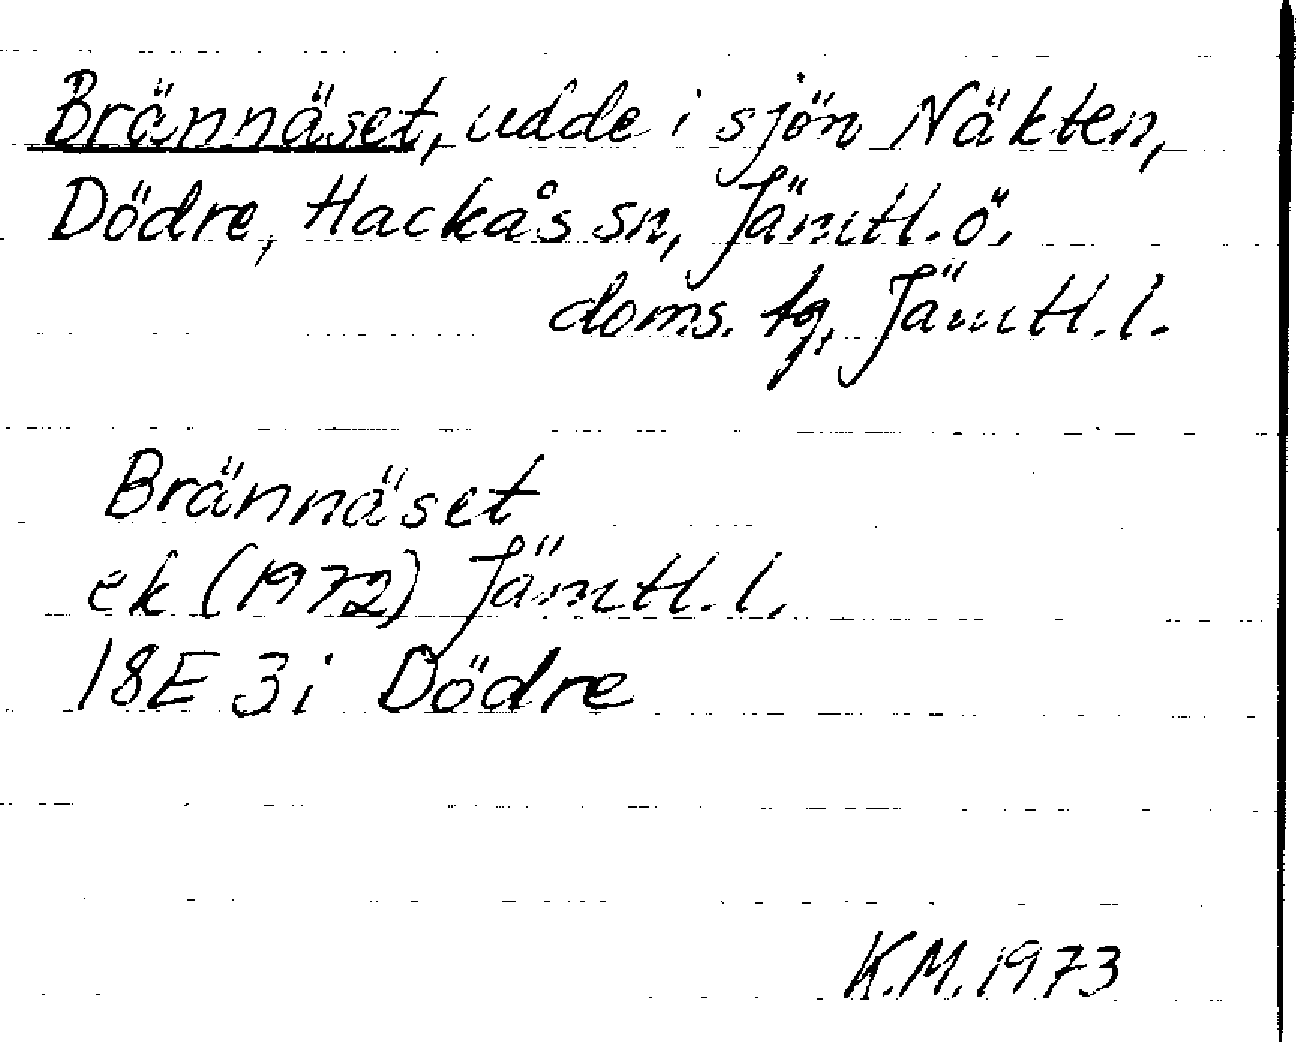 Brännäset, udde i sjön Näkten,
Dödre, Hackås sn, Jämtl. ö.
doms. tg, Jämtl. l.
Brännäset
ek (1972) Jämtl. l.
18E 3i Dödre
K.M. 1973